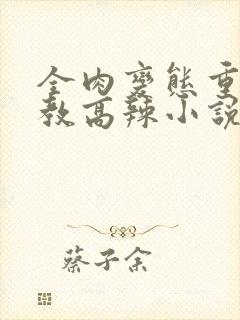 全肉變態重
教高辣小說
蔡子余